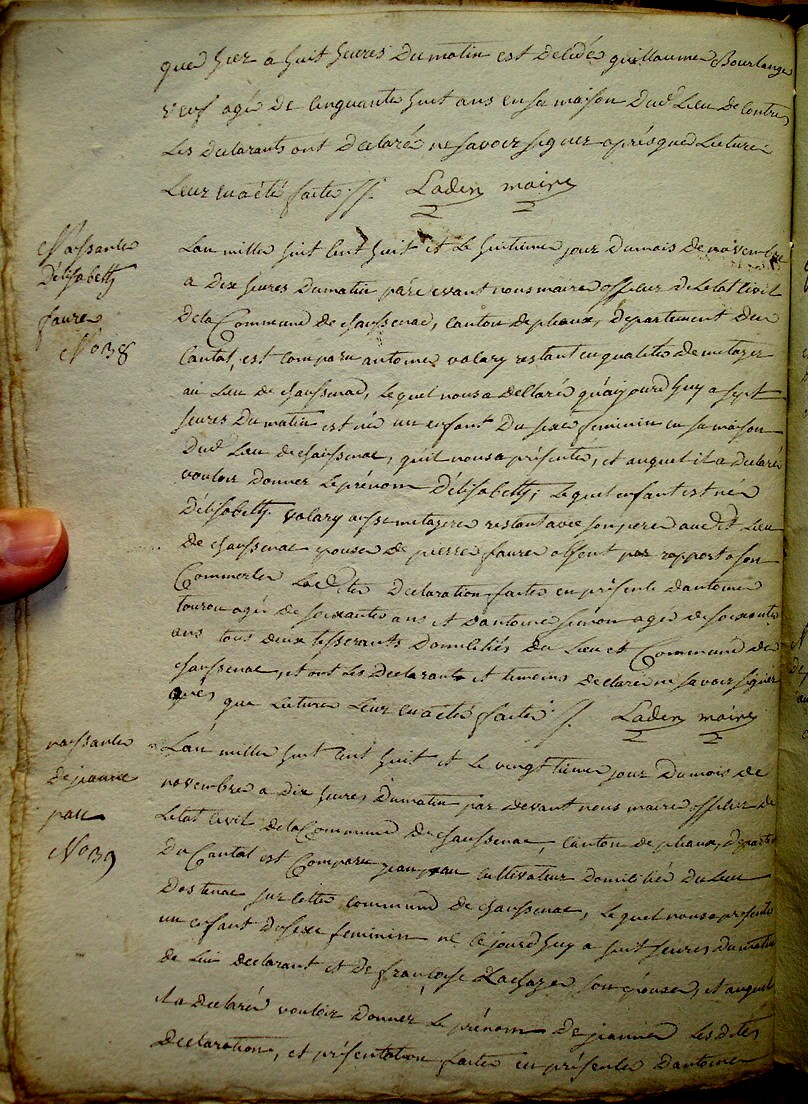 que hier à huit heures du matin est decédé guillaume Bourlange
veuf agé de cinquante huit ans en sa maison dud. Lieu de Contre,
Les declarants ont declaré ne savoir signer après que Lecture
Leur en a été faite ./. Laden maire
Naissance
d'élisabeth
faure
No 38
Lan mille huit cent huit et Le huitieme jour du mois de novembre
a dix heures du matin par devant nous maire officier de Letat Civil
de la Commune de chaussenac, canton de pleaux, departement du
Cantal, est comparu antoine valary restant en qualité de metayer
au Lieu de chaussenac, Lequel nous a declaré qu'aujourd huy a sept
heures du matin est né un enfant du sexe feminin en sa maison
dud. Lieu de chaussenac, qu'il nous a présenté, et auquel il a declaré
vouloir donner Le prénom d'élisabeth; Lequel enfant est né
d'élisabeth valary aussi metayere restant avec son pere audit Lieu
de chaussenac epouse de pierre faure absent par rapport a son
Commerce Ladite declaration faite en présence d'antoine
tourou agé de soixante ans et d'antoine simon agé de soixante
ans tous deux tisserants domiciliés du Lieu et Commune de
chaussenac, et ont Les declarants et temoins declaré ne savoir signer
après que Lecture Leur en a été faite ./. Laden maire
naissance
de jeanne
pau
No 39
Lan mille huit cent huit et Le vingtieme jour du mois de
novembre a dix heures du matin par devant nous maire officier de
Letat Civil de la Commune de chaussenac, canton de pleaux, departe
du Cantal est Comparu jean pau cultivateur domicilié du Lieu
d'ostenac sur cette commune de chaussenac, Lequel nous a présenté
un enfant du sexe feminin né ce jourd huy a huit heures du matin
de Lui declarant et de françoise Lachaze son épouse, et auquel
il a declaré vouloir donner Le prénom de jeanne Les dites
declaration, et présentation faite en présence d'antoine